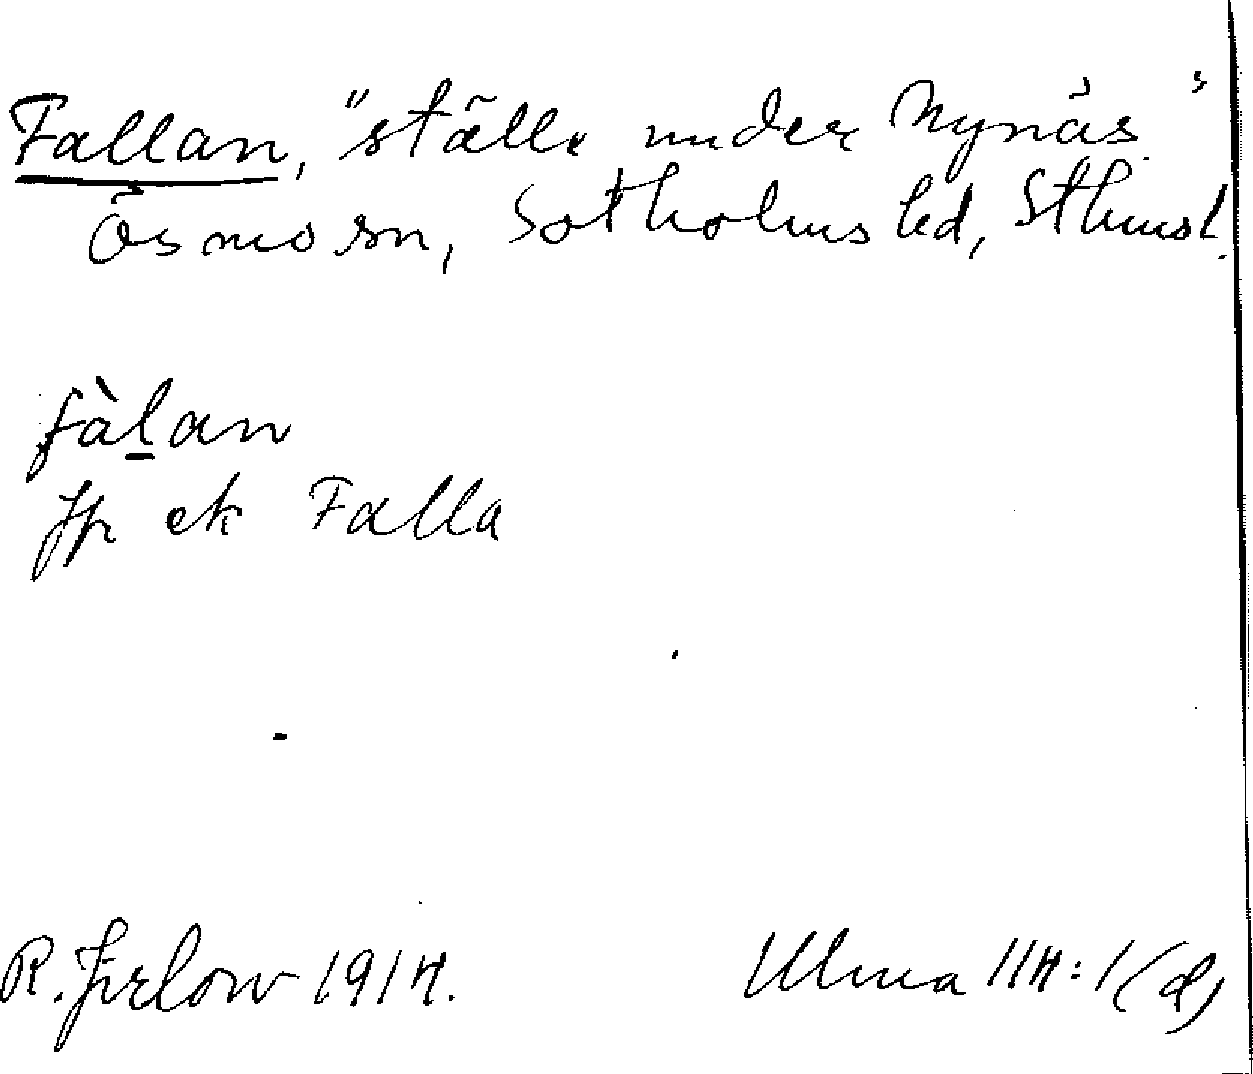 Fallan, "ställe under Nynäs"
Ösmo sn, Sotholms hd, Sthmsl.
fàlan
Jp ek Falla
R. Jirlow 1914.
Ulma 114:1(d)